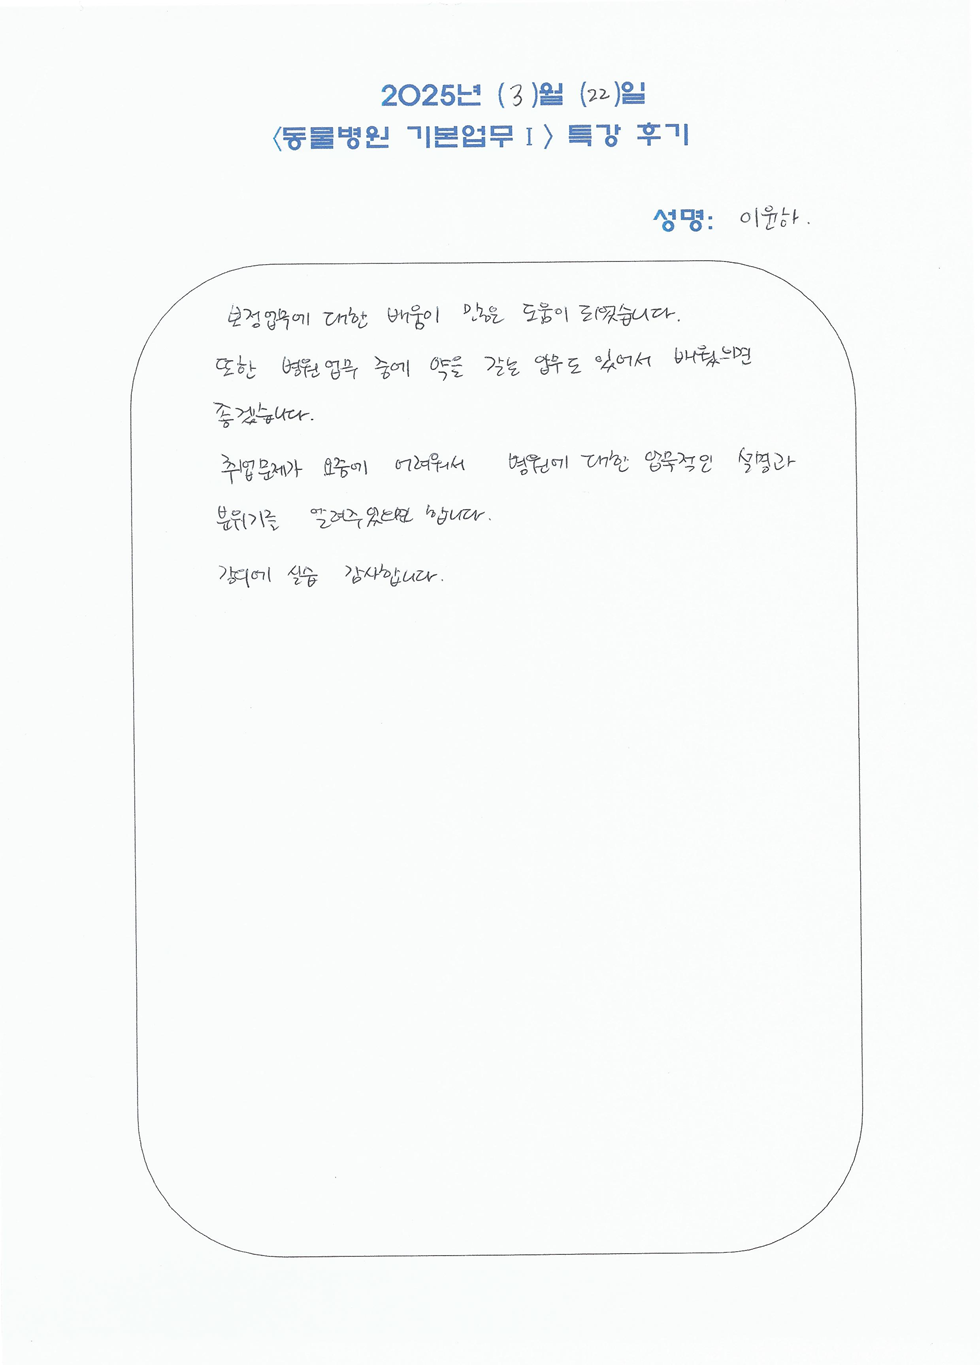 2025년 (3)월 (22)일
〈동물병원 기본업무 I 〉 특강 후기
성명: 이윤하.
보정업무에 대한 배움이 많은 도움이 되었습니다.
또한 병원업무 중에 약을 갈는 업무도 있어서 배웠으면
좋겠습니다.
취업문제가 요즘에 어려워서 병원에 대한 업무적인 설명과
분위기를 알려주셨으면 합니다.
실습 감사합니다.